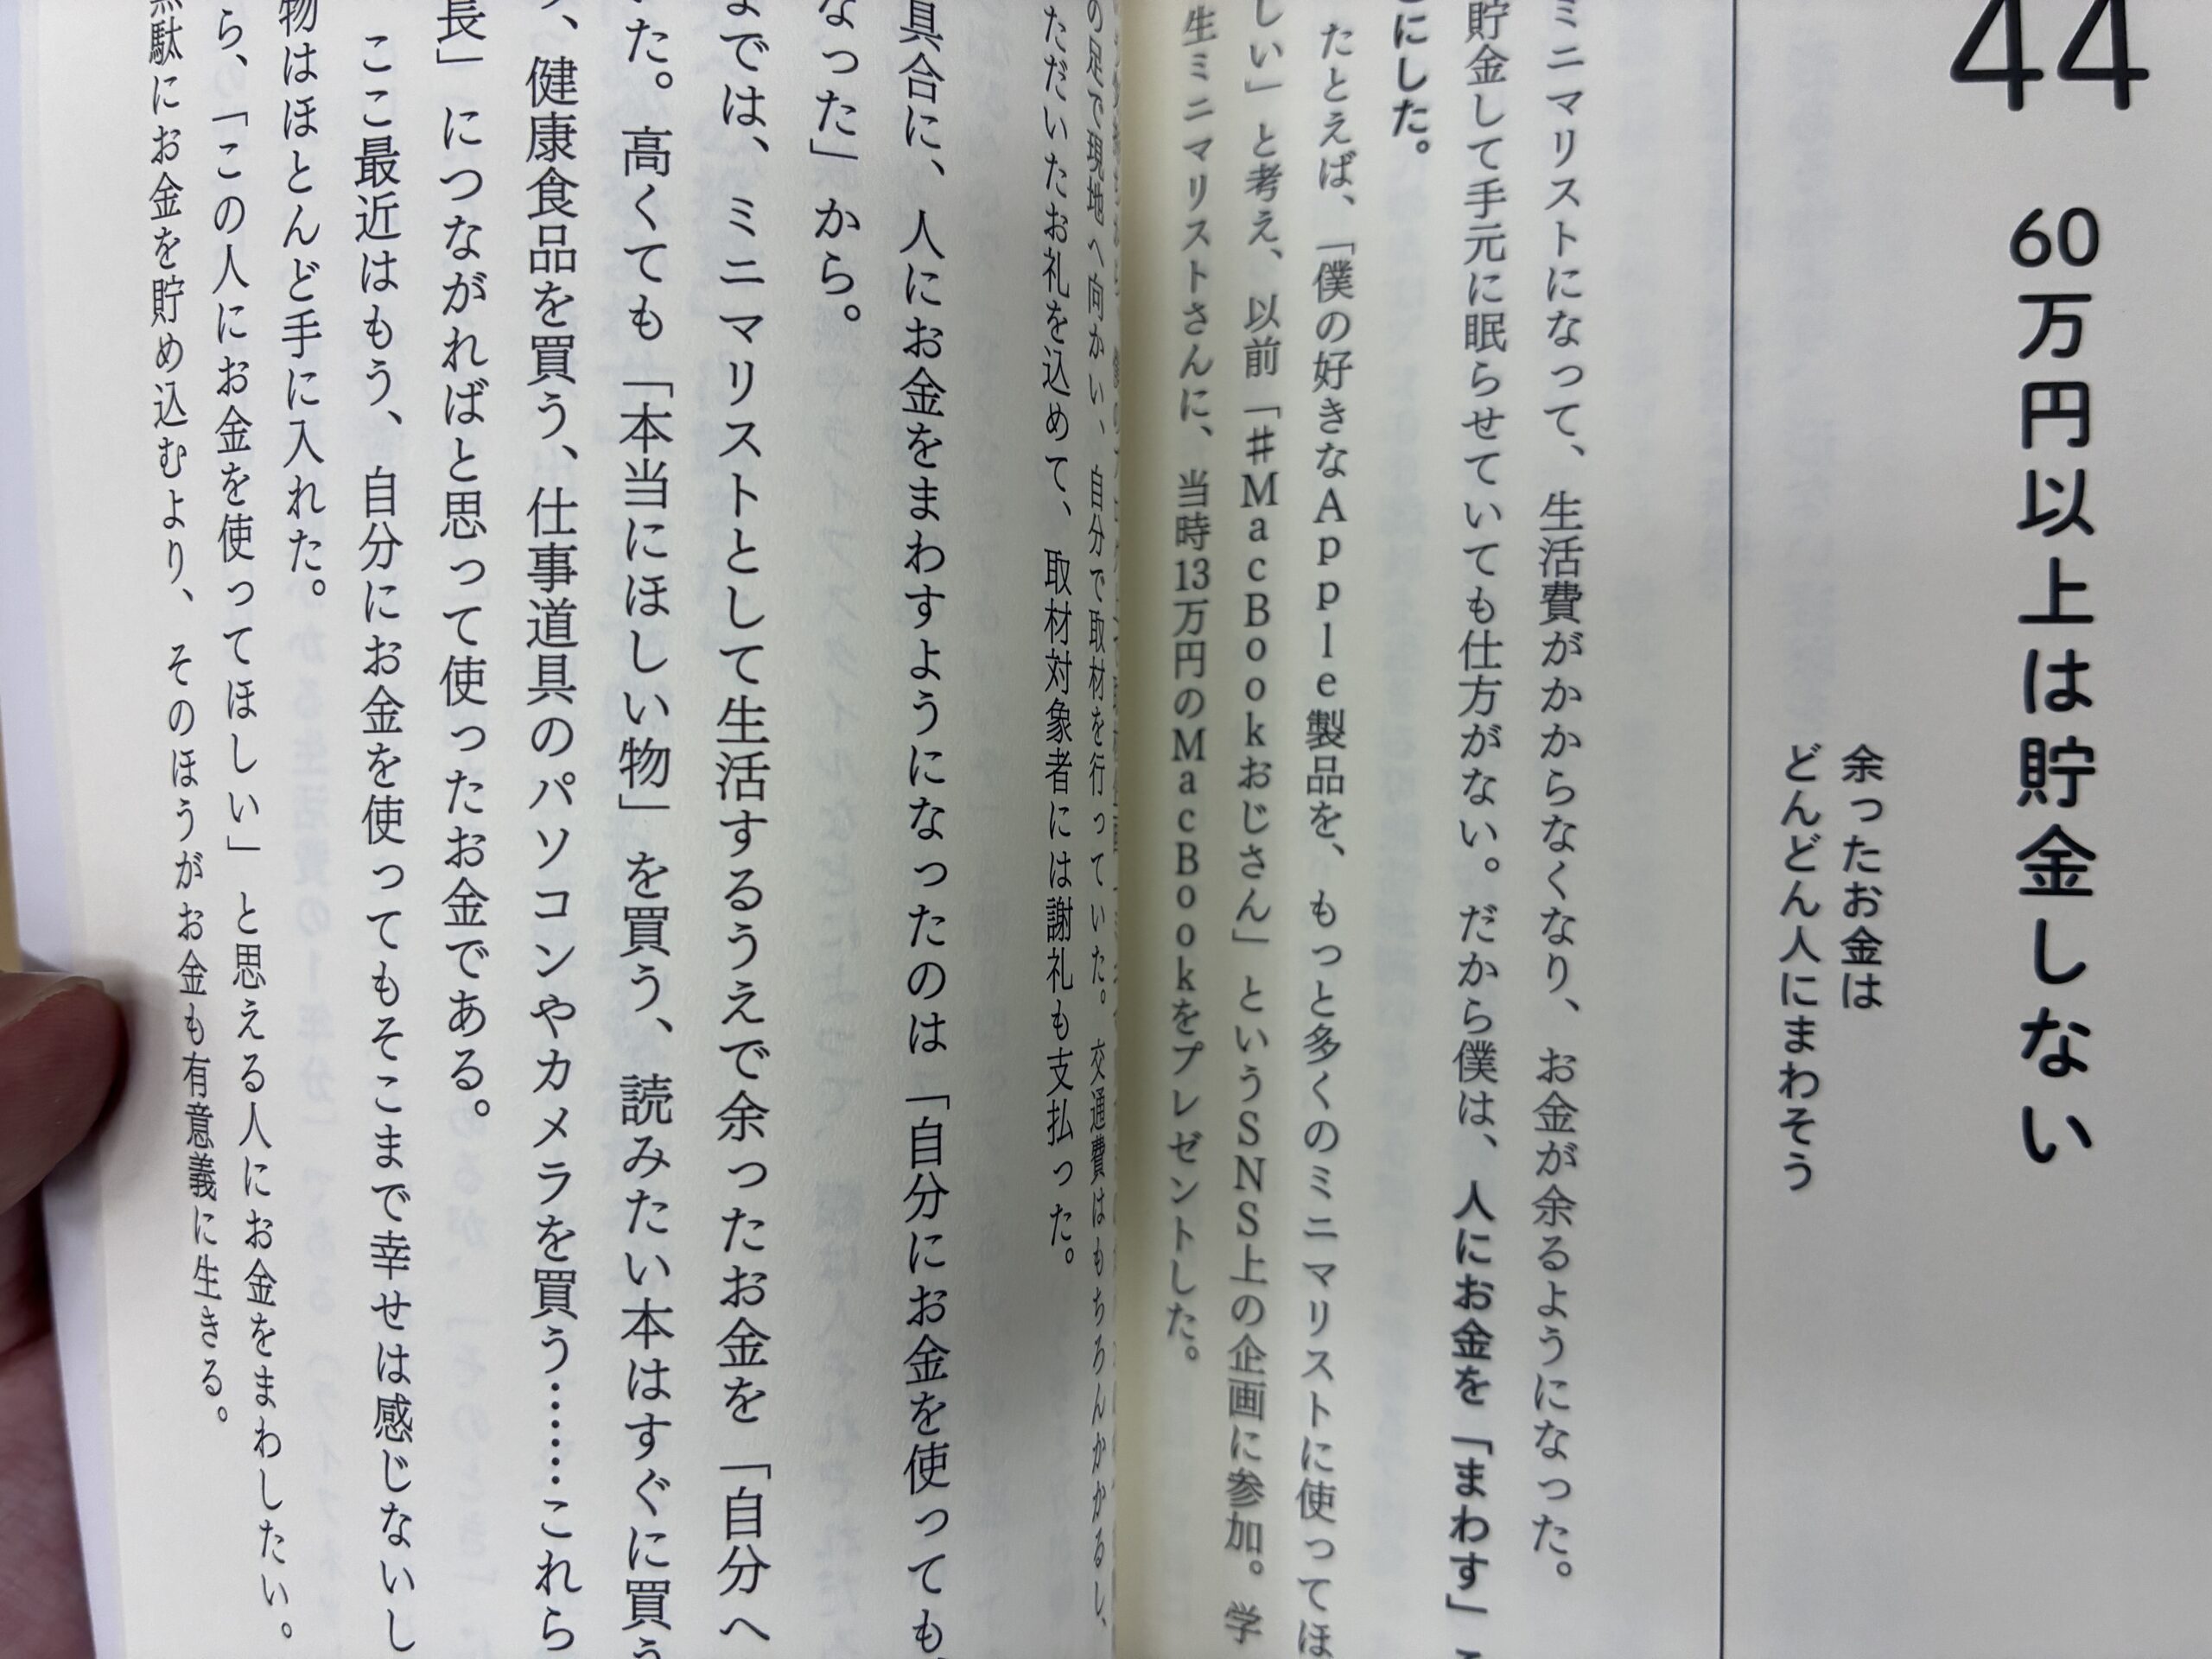 44
60万円以上は貯金しない
余ったお金は
どんどん人にまわそう
ミニマリストになって、生活費がかからなくなり、お金が余るようになった。
貯金して手元に眠らせていても仕方がない。だから僕は、人にお金を「まわす」
にした。
たとえば、「僕の好きなApple製品を、もっと多くのミニマリストに使ってほ
しい」と考え、以前「#MacBookおじさん」というSNS上の企画に参加。学
生ミニマリストさんに、当時13万円のMacBookをプレゼントした。
の足で現地へ向かい、自分で取材を行っていた。交通費はもちろんかかるし、
ただいたお礼を込めて、取材対象者には謝礼も支払った。
具合に、人にお金をまわすようになったのは「自分にお金を使っても
なった」から。
までは、ミニマリストとして生活するうえで余ったお金を「自分へ
た。高くても「本当にほしい物」を買う、読みたい本はすぐに買う
、健康食品を買う、仕事道具のパソコンやカメラを買う……これら
長」につながればと思って使ったお金である。
ここ最近はもう、自分にお金を使ってもそこまで幸せは感じないし
物はほとんど手に入れた。
ら、「この人にお金を使ってほしい」と思える人にお金をまわしたい。
無駄にお金を貯め込むより、そのほうがお金も有意義に生きる。